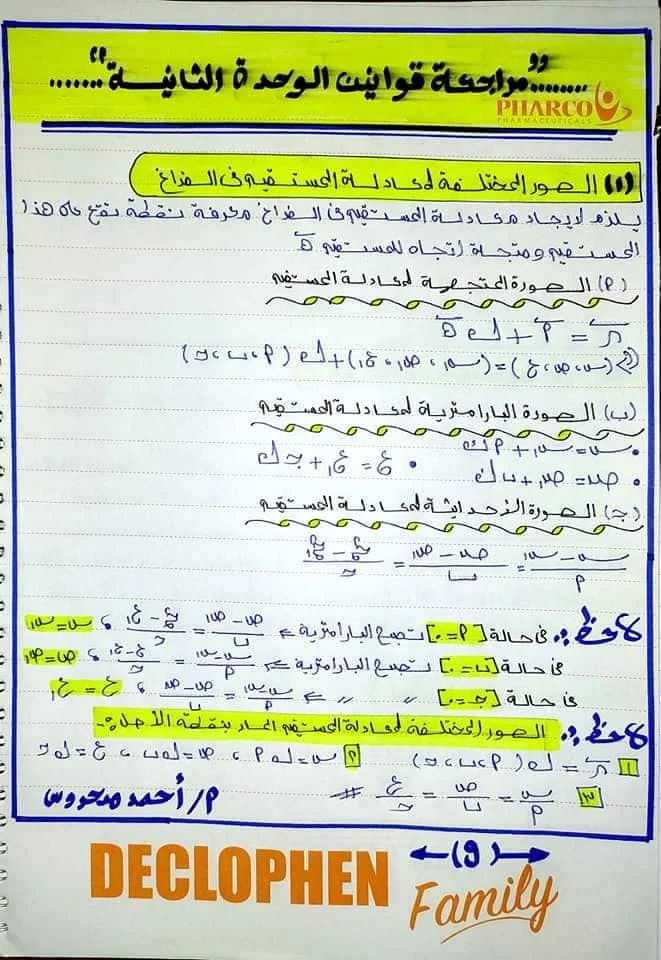 "مراجعة قوانين الوحدة الثانية"
PHARCO
PHARMACEUTICALS
(١) الصور المختلفة لمعادلة المستقيم فى الفراغ
يلزم لإيجاد معادلة المستقيم فى الفراغ معرفة نقطة تقع على هذا
المستقيم ومتجه اتجاه للمستقيم هـ
(P) الصورة المتجهة لمعادلة المستقيم
ر = P + ك هـ
(س، ص، ع) = (س١، ص١، ع١) + ك (P، ب، جـ)
(ب) الصورة البارامترية لمعادلة المستقيم
• س = س١ + P ك
• ص = ص١ + ب ك • ع = ع١ + جـ ك
(جـ) الصورة الإحداثية لمعادلة المستقيم
س - س١ / P = ص - ص١ / ب = ع - ع١ / جـ
لاحظ :. فى حالة [P = ٠] تصبح البارامترية ⇐ ص - ص١ / ب = ع - ع١ / جـ ، س = س١
فى حالة [ب = ٠] تصبح البارامترية ⇐ س - س١ / P = ع - ع١ / جـ ، ص = ص١
فى حالة [جـ = ٠] " " ⇐ س - س١ / P = ص - ص١ / ب ، ع = ع١
لاحظ :. الصور المختلفة لمعادلة المستقيم المار بنقطة الأصل :-
١ ر = ك (P، ب، جـ) ٢ س = ك P ، ص = ك ب ، ع = ك جـ
٣ س / P = ص / ب = ع / جـ #
م/ أحمد محروس
(9)
DECLOPHEN
Family